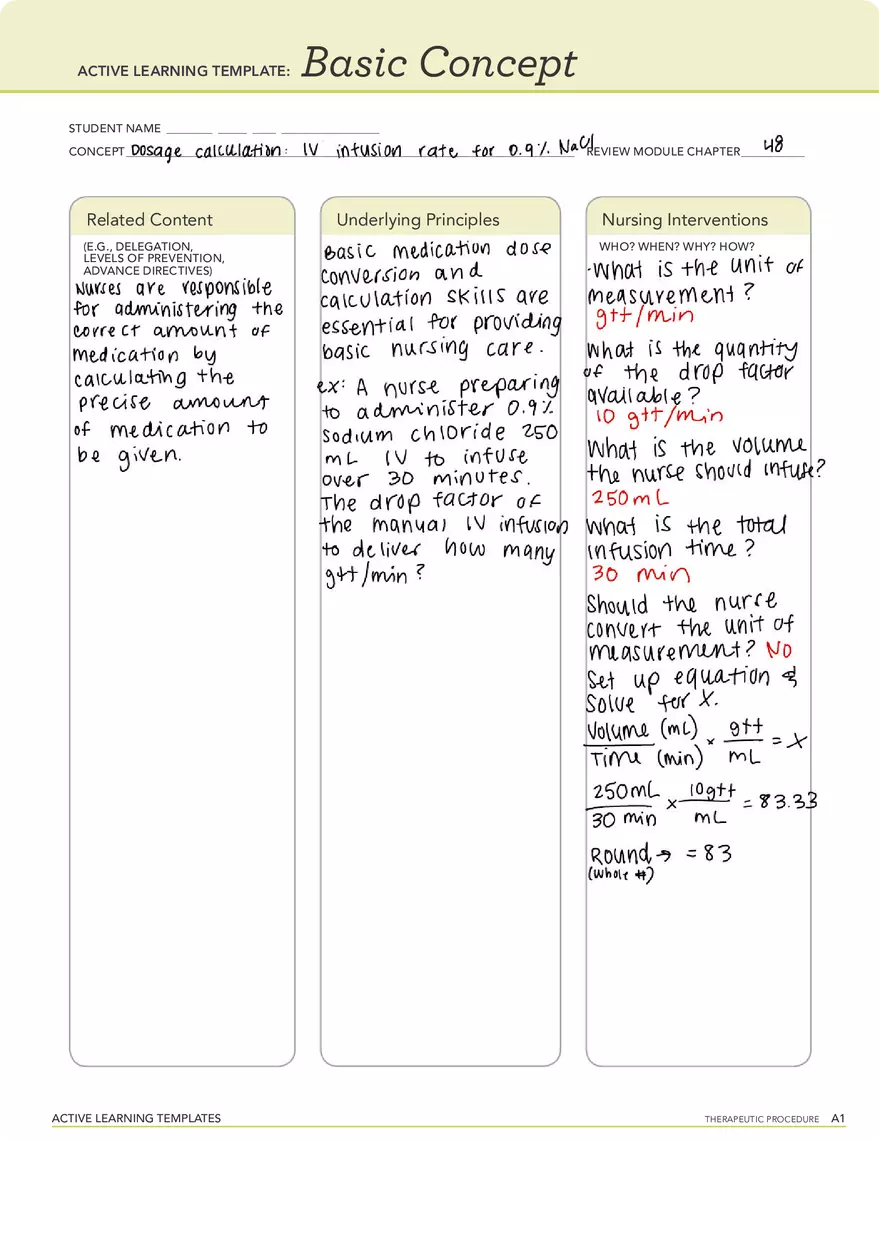 ACTIVE LEARNING TEMPLATE: Basic Concept
STUDENT NAME
CONCEPT Dosage calculation: IV infusion rate for 0.9% NaCl REVIEW MODULE CHAPTER 48
Related Content
(E.G., DELEGATION,
LEVELS OF PREVENTION,
ADVANCE DIRECTIVES)
Nurses are responsible
for administering the
correct amount of
medication by
calculating the
precise amount
of medication to
be given.
Underlying Principles
Basic medication dose
conversion and
calculation skills are
essential for providing
basic nursing care.
ex: A nurse preparing
to administer 0.9%
Sodium chloride 250
mL IV to infuse
over 30 minutes.
The drop factor of
the manual IV infusion
to deliver how many
gtt/min?
Nursing Interventions
WHO? WHEN? WHY? HOW?
·What is the unit of
measurement?
gtt/min
What is the quantity
of the drop factor
available?
10 gtt/min
What is the volume
the nurse should infuse?
250mL
What is the total
infusion time?
30 min
Should the nurse
convert the unit of
measurement? NO
Set up equation &
Solve for X.
Volume (mL) × gtt = X
Time (min) mL
250mL × 10gtt = 83.33
30 min mL
Round → = 83
(whole #)
ACTIVE LEARNING TEMPLATES
THERAPEUTIC PROCEDURE A1